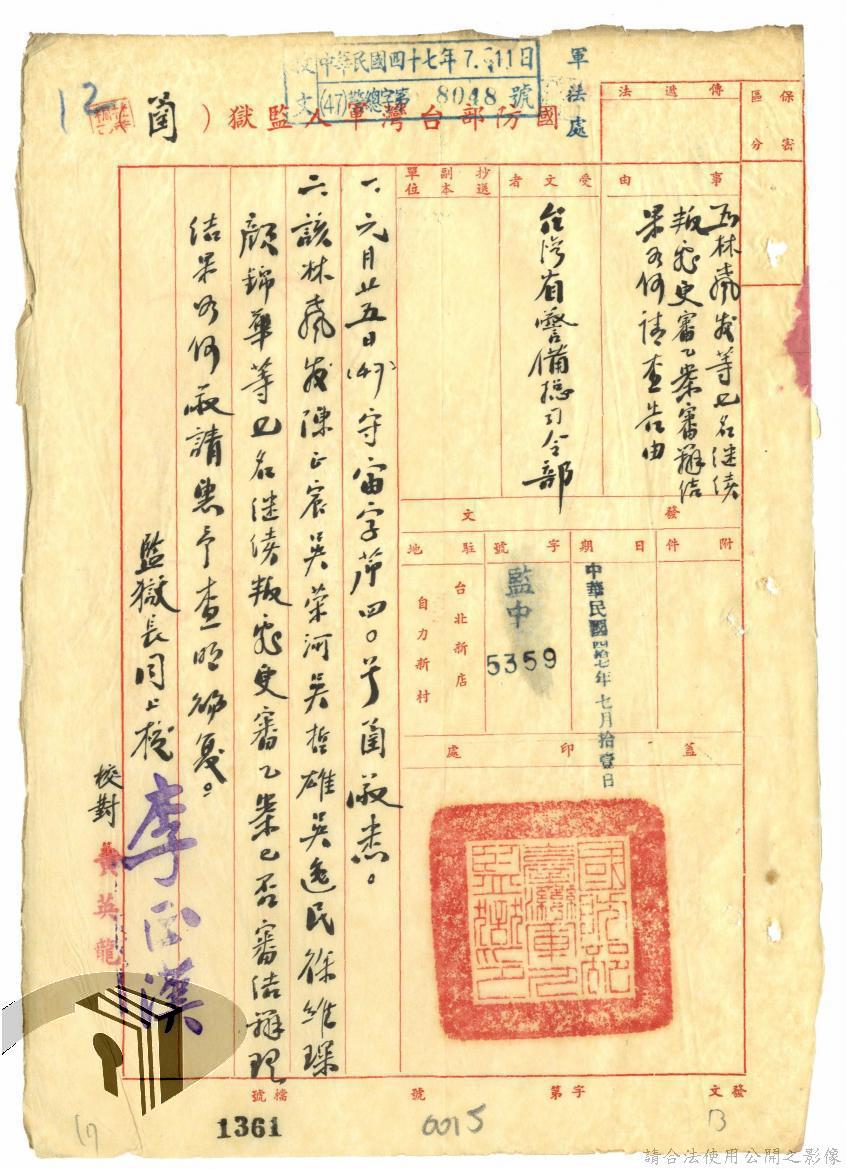 收文
中華民國四十七年7.11日
(47)警總字第8048號
軍法處
12
國防部台灣軍人監獄(函)
保密區分
傳遞法
事由
為林痲發等七名繼續
叛亂更審乙案審辦結
果如何請查告由
受文者
台灣省警備總司令部
抄送副本單位
發文
附件
日期
中華民國四拾七年七月拾壹日
字號
監中
5359
駐地
台北新店
自力新村
蓋印處
國防部臺灣軍人監獄印
一、元月廿五日(47)守宙字第四〇號函敬悉。
二、該林 發陳正宸吳榮河吳哲雄吳逸民徐維琛
顏錦華等七名繼續叛亂更審乙案已否審結辦理
結果如何敬請惠予查明
監獄長周上校
李正漢
校對
黃英龍
發文
字第
號
檔號
1361
6015
13
請合法使用公開之影像